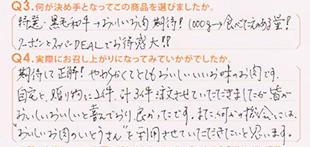 Q3. 何が決め手となってこの商品を選びましたか。
特選・黒毛和牛→おいしいお肉期待! 1000g→食べごたえある量!
クーポンとスーパーDEALでお得感大!?
Q4. 実際にお召し上がりになってみていかがでしたか。
期待して正解! やわらかくてとてもおいしいいいお味のお肉です。
自宅と、贈り物に2件、計3件注文させていただきましたが皆が
おいしいおいしいと喜んでおり、良かったです。また何かの機会には、
おいしいお肉のいとうさん"を利用させていただきたいと思います。